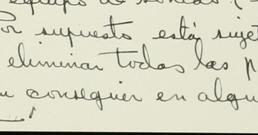 equipo de sonido (
Por supuesto está sujet
eliminar todas las p
u conseguir en algu